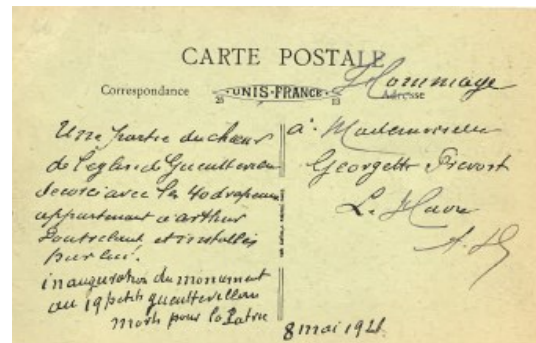 CARTE POSTALE
Correspondance
25 UNIS-FRANCE 13
Adresse
Une partie du chœur
de l'église de Gueutteville
décoré avec les 40 drapeaux
appartenant à arthur
et installés
par lui.
inauguration du monument
au 19 petits gueuttevillais
morts pour la Patrie
Hommage
à Mademoiselle
Georgette Prevost
Le Havre
8 mai 1921